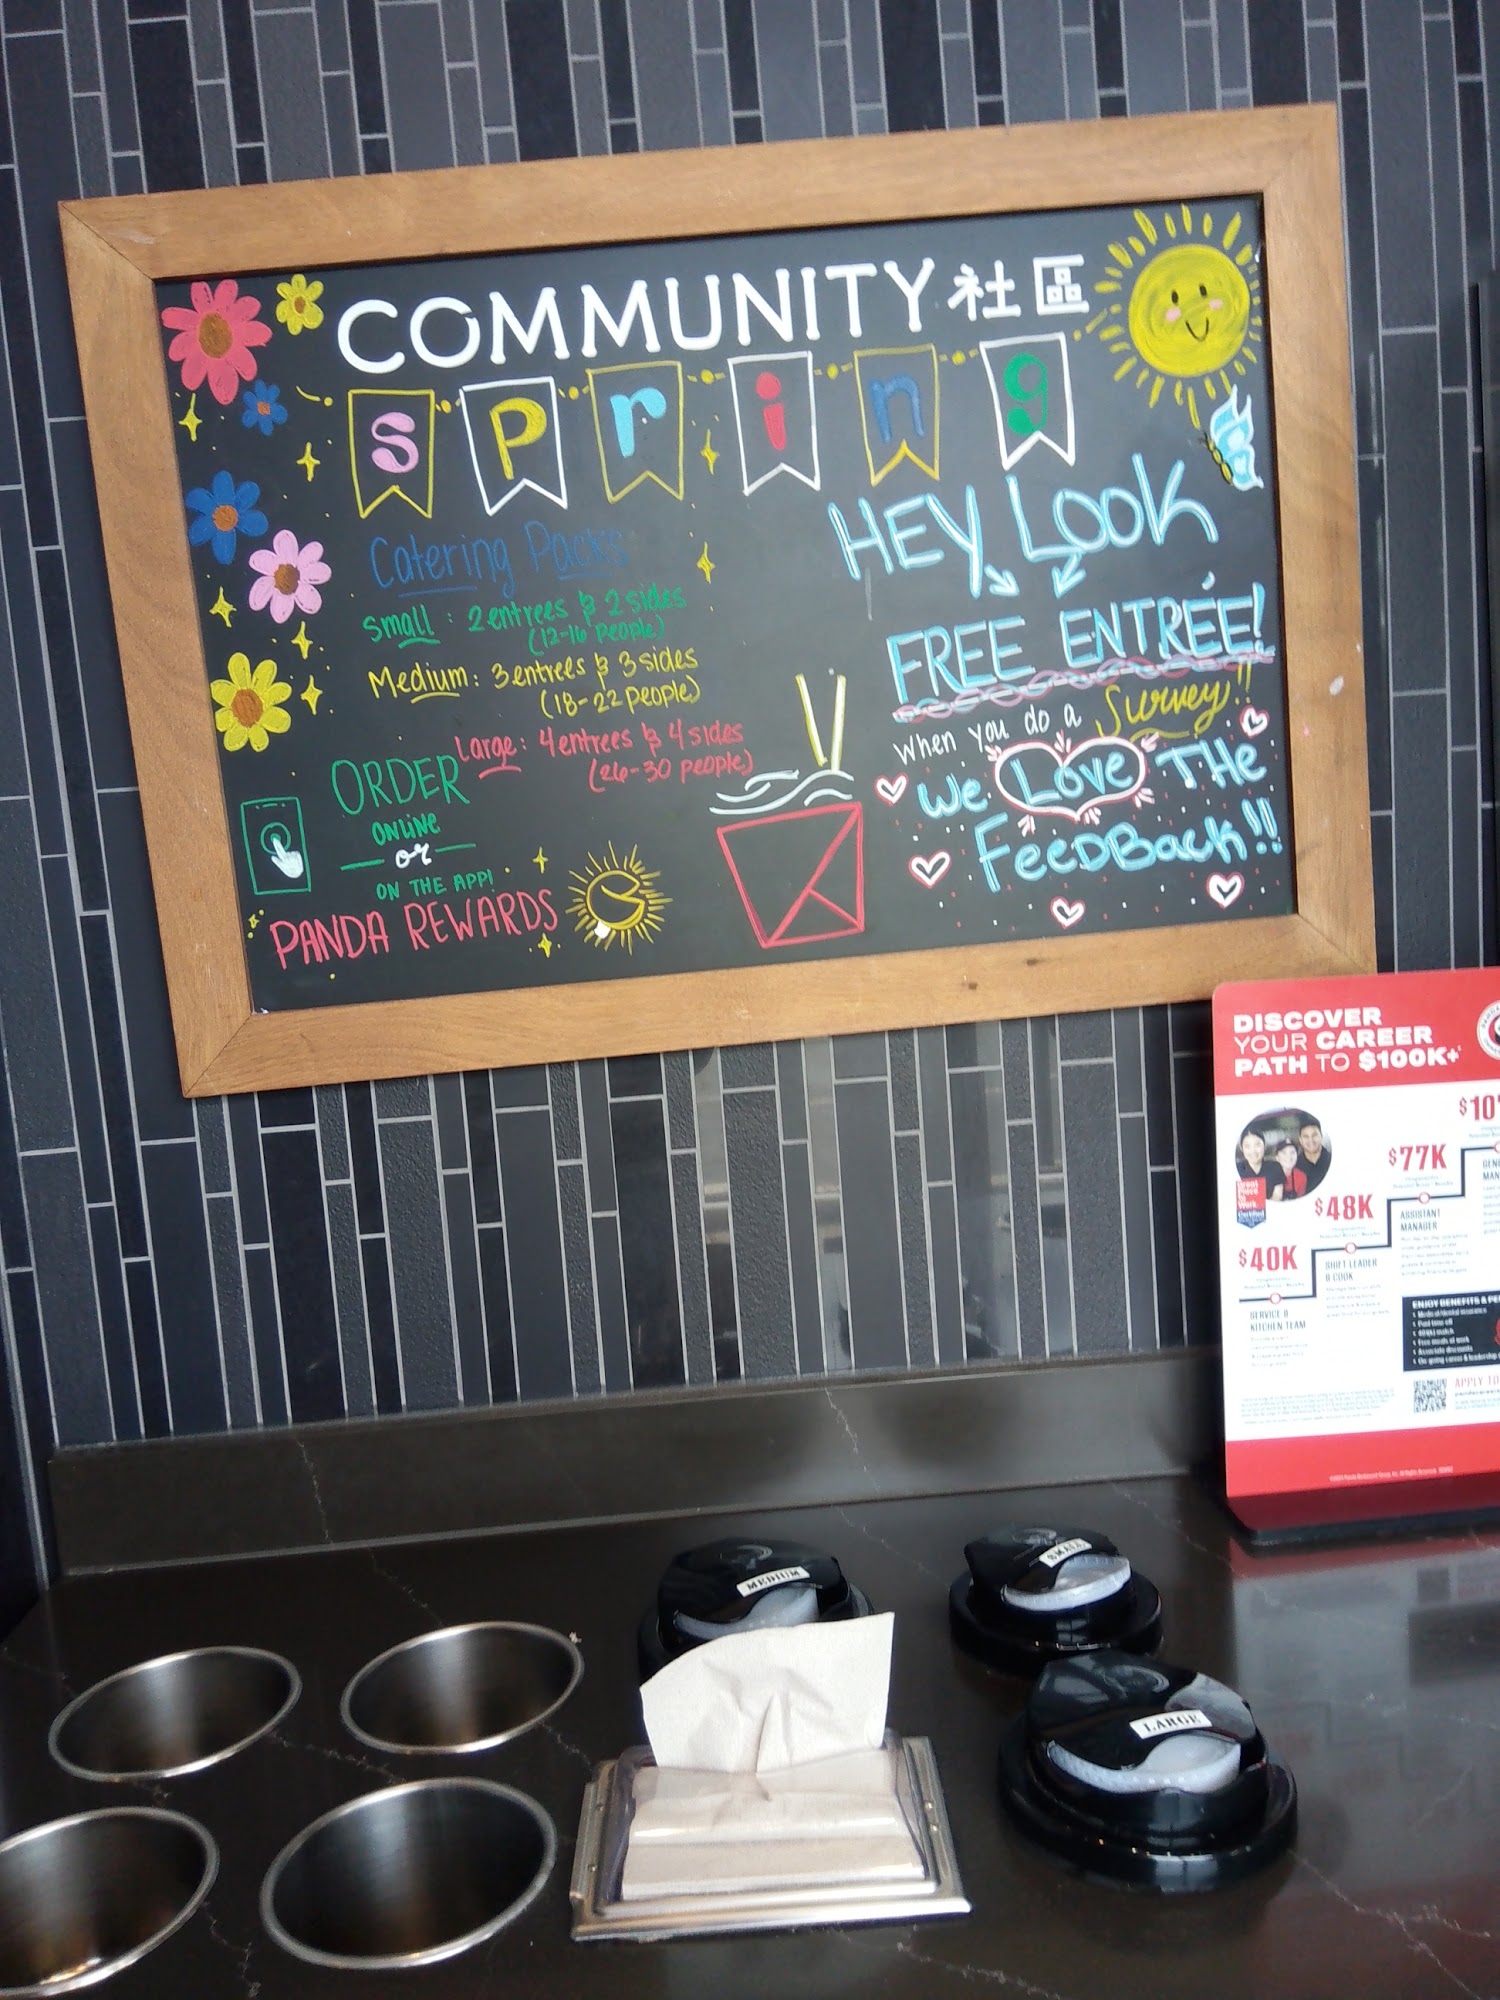 COMMUNITY 社區
spring
Catering Packs
Small: 2 entrees & 2 sides
(12-16 people)
Medium: 3 entrees & 3 sides
(18-22 people)
Large: 4 entrees & 4 sides
(26-30 people)
ORDER
ONLINE
or
ON THE APP!
PANDA REWARDS
HEY LOOK
FREE ENTRÉE!
When you do a Survey!!
We Love THe
FeeDBack!!
DISCOVER
YOUR CAREER
PATH TO $100K+
$40K
SERVICE &
KITCHEN TEAM
$48K
SHIFT LEADER
& COOK
$77K
ASSISTANT
MANAGER
$10
ENJOY BENEFITS & PE
Medical/dental insurance
Paid time off
401(k) match
Free meals at work
Associate discounts
On-going career & leadership
APPLY TO
MEDIUM
SMALL
LARGE